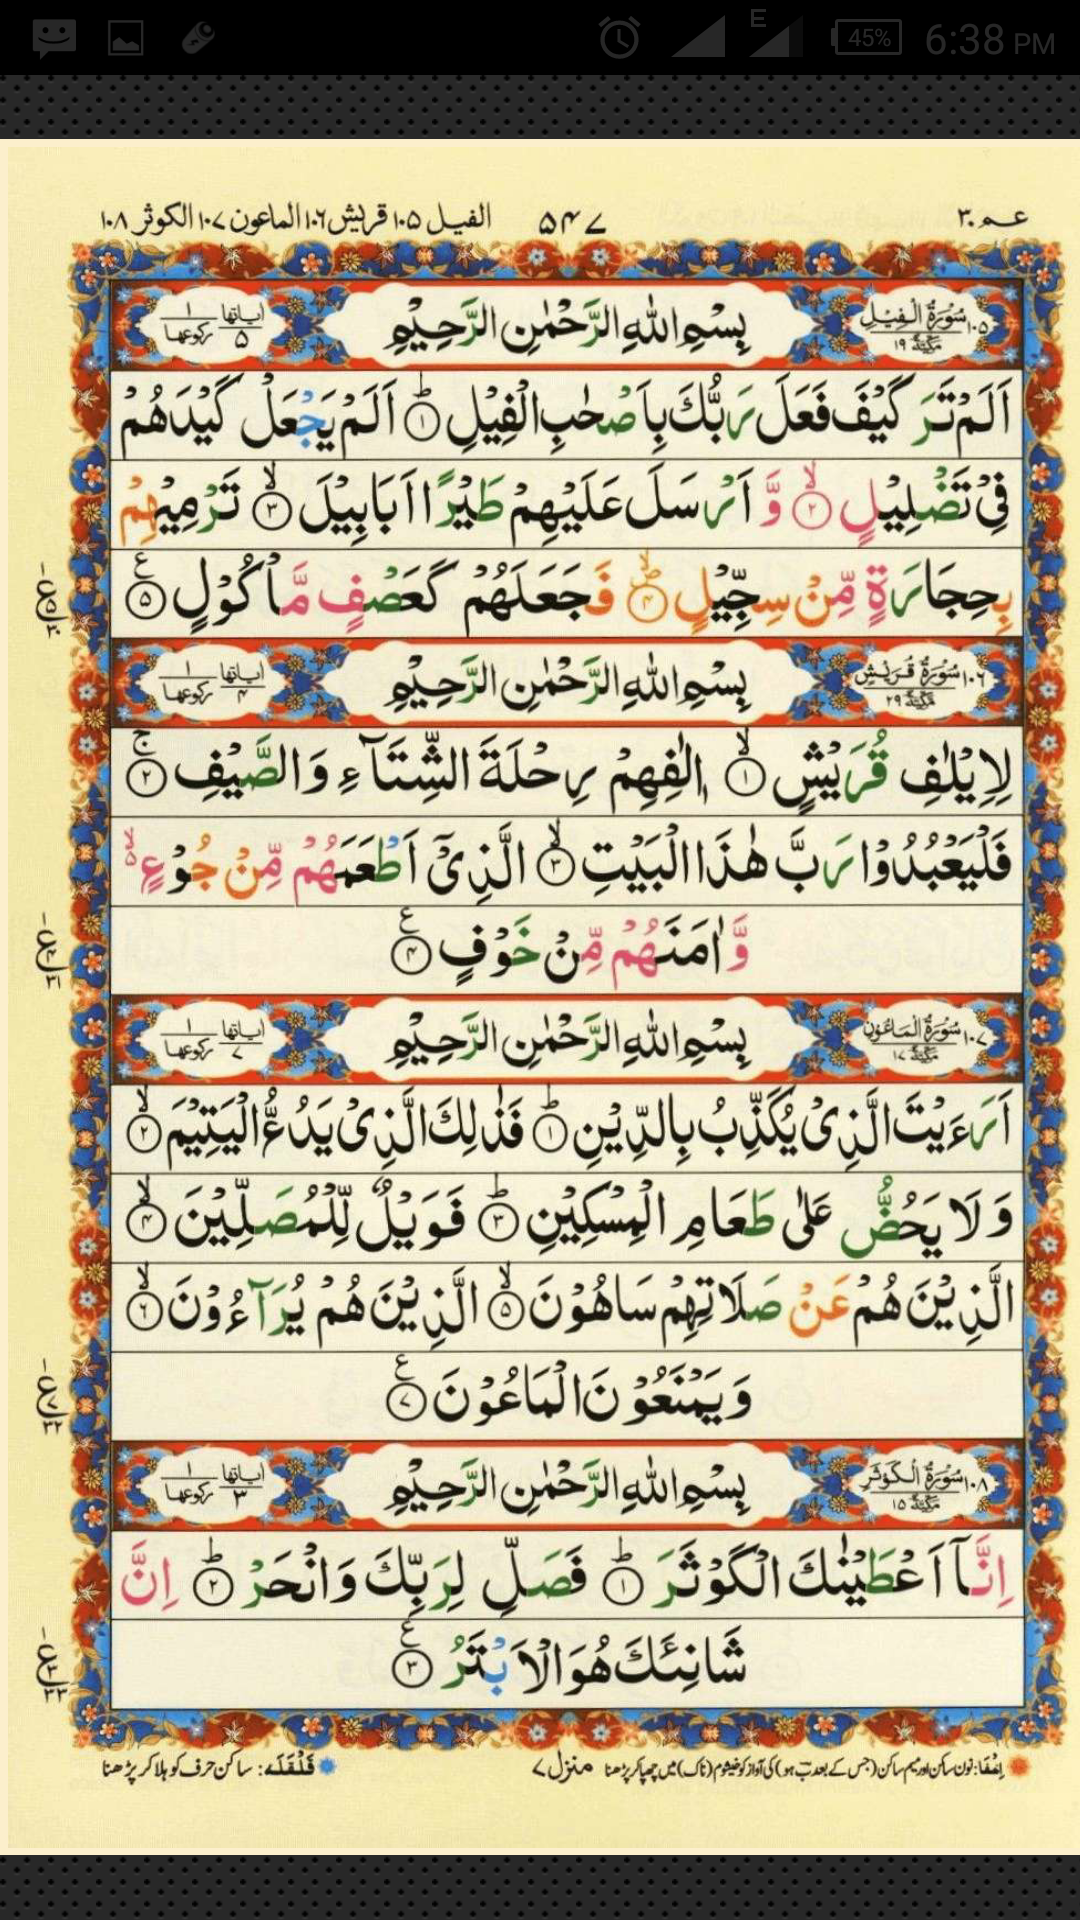 E 45% 6:38 PM
عـم ٣٠ ۵۴۷ الفیل ۱۰۵ قریش ۱۰۶ الماعون ۱۰۷ الکوثر ۱۰۸
۱۰۵ سُوْرَةُ الْفِيْلِ مَكِّيَّةٌ ۱۹ بِسْمِ اللهِ الرَّحْمٰنِ الرَّحِيْمِ اٰيَاتُهَا ۵ رُكُوْعُهَا ۱
اَلَمْ تَرَ كَيْفَ فَعَلَ رَبُّكَ بِاَصْحٰبِ الْفِيْلِ ؕ﴿۱﴾ اَلَمْ يَجْعَلْ كَيْدَهُمْ
فِيْ تَضْلِيْلٍ ۙ﴿۲﴾ وَّ اَرْسَلَ عَلَيْهِمْ طَيْرًا اَبَابِيْلَ ۙ﴿۳﴾ تَرْمِيْهِمْ
بِحِجَارَةٍ مِّنْ سِجِّيْلٍ ۪ۙ﴿۴﴾ فَجَعَلَهُمْ كَعَصْفٍ مَّاْكُوْلٍ ﴿۵﴾ ع
۱۰۶ سُوْرَةُ قُرَيْشٍ مَكِّيَّةٌ ۲۹ بِسْمِ اللهِ الرَّحْمٰنِ الرَّحِيْمِ اٰيَاتُهَا ۴ رُكُوْعُهَا ۱
لِاِيْلٰفِ قُرَيْشٍ ۙ﴿۱﴾ اٖلٰفِهِمْ رِحْلَةَ الشِّتَآءِ وَالصَّيْفِ ۚ﴿۲﴾
فَلْيَعْبُدُوْا رَبَّ هٰذَا الْبَيْتِ ۙ﴿۳﴾ الَّذِيْٓ اَطْعَمَهُمْ مِّنْ جُوْعٍ ۙ۬
وَّاٰمَنَهُمْ مِّنْ خَوْفٍ ﴿۴﴾ ع
۱۰۷ سُوْرَةُ الْمَاعُوْنِ مَكِّيَّةٌ ۱۷ بِسْمِ اللهِ الرَّحْمٰنِ الرَّحِيْمِ اٰيَاتُهَا ۷ رُكُوْعُهَا ۱
اَرَءَيْتَ الَّذِيْ يُكَذِّبُ بِالدِّيْنِ ؕ﴿۱﴾ فَذٰلِكَ الَّذِيْ يَدُعُّ الْيَتِيْمَ ۙ﴿۲﴾
وَلَا يَحُضُّ عَلٰى طَعَامِ الْمِسْكِيْنِ ؕ﴿۳﴾ فَوَيْلٌ لِّلْمُصَلِّيْنَ ۙ﴿۴﴾
الَّذِيْنَ هُمْ عَنْ صَلَاتِهِمْ سَاهُوْنَ ۙ﴿۵﴾ الَّذِيْنَ هُمْ يُرَآءُوْنَ ۙ﴿۶﴾
وَيَمْنَعُوْنَ الْمَاعُوْنَ ﴿۷﴾ ع
۱۰۸ سُوْرَةُ الْكَوْثَرِ مَكِّيَّةٌ ۱۵ بِسْمِ اللهِ الرَّحْمٰنِ الرَّحِيْمِ اٰيَاتُهَا ۳ رُكُوْعُهَا ۱
اِنَّآ اَعْطَيْنٰكَ الْكَوْثَرَ ؕ﴿۱﴾ فَصَلِّ لِرَبِّكَ وَانْحَرْ ؕ﴿۲﴾ اِنَّ
شَانِئَكَ هُوَ الْاَبْتَرُ ﴿۳﴾ ع
اِخفَا: نون ساکن اور میم ساکن (جس کے بعد ب ہو) کی آواز کو خیشوم (ناک) میں چھپا کر پڑھنا منزل ۷ قَلْقَلَه: ساکن حرف کو ہلا کر پڑھنا